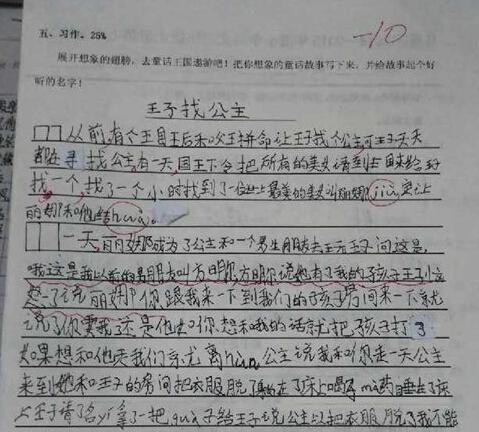 五、习作。25%
-10
展开想象的翅膀,去童话王国遨游吧!把你想象的童话故事写下来,并给故事起个好
听的名字!
王子找公主
从前,有个王国王后和국王拼命让王子找个公主可王子天天
都在寻找公主有一天国王下令把所有的美女请到占日来给王子
找一个,找了一个小时找到了一位世上最美的美女叫丽娜jiù让
丽娜和他结hūn。
一天,丽娜成为了公主和一个男生朋友去王子问这是,
哦这是我以前的男朋友叫方明你方明说她有了我的孩子王子小
起了说丽娜你跟我来一下到我们的孩子房间来一下就
说了你要我还是他如你想和我的话就把孩子打了
如果想和他走我们就离hūn,公主说我和你走一天公主
来到她和王子的房间把衣服脱了 在了床上喝了 药睡在了床
上王子请了 yī 拿了一把 子给王子说公主以把衣服脱了我不能